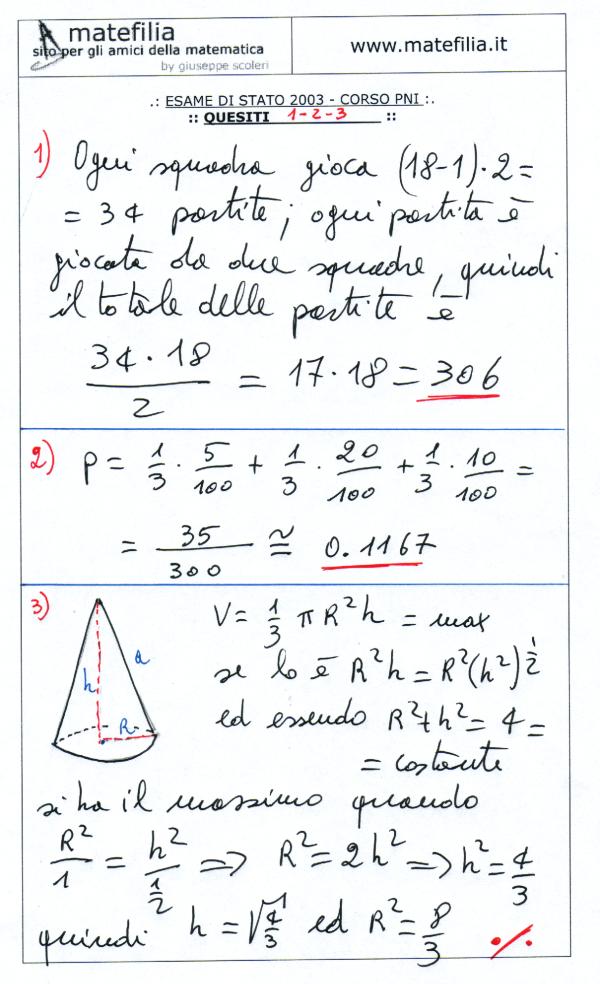 matefilia
sito per gli amici della matematica
by giuseppe scoleri
www.matefilia.it
.: ESAME DI STATO 2003 - CORSO PNI :.
:: QUESITI 1-2-3 ::
1) Ogni squadra gioca (18-1)·2=
= 34 partite; ogni partita è
giocata da due squadre, quindi
il totale delle partite è
34·18/2 = 17·18 = 306
2) p = 1/3 · 5/100 + 1/3 · 20/100 + 1/3 · 10/100 =
= 35/300 ≅ 0.1167
3) V = 1/3 π R²h = max
se lo è R²h = R²(h²)^1/2
ed essendo R²+h² = 4 =
= costante
h a R
si ha il massimo quando
R²/1 = h²/(1/2) => R² = 2h² => h² = 4/3
quindi h = √4/3 ed R² = 8/3 ·/.